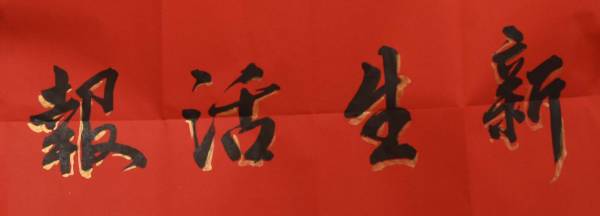 新生活報